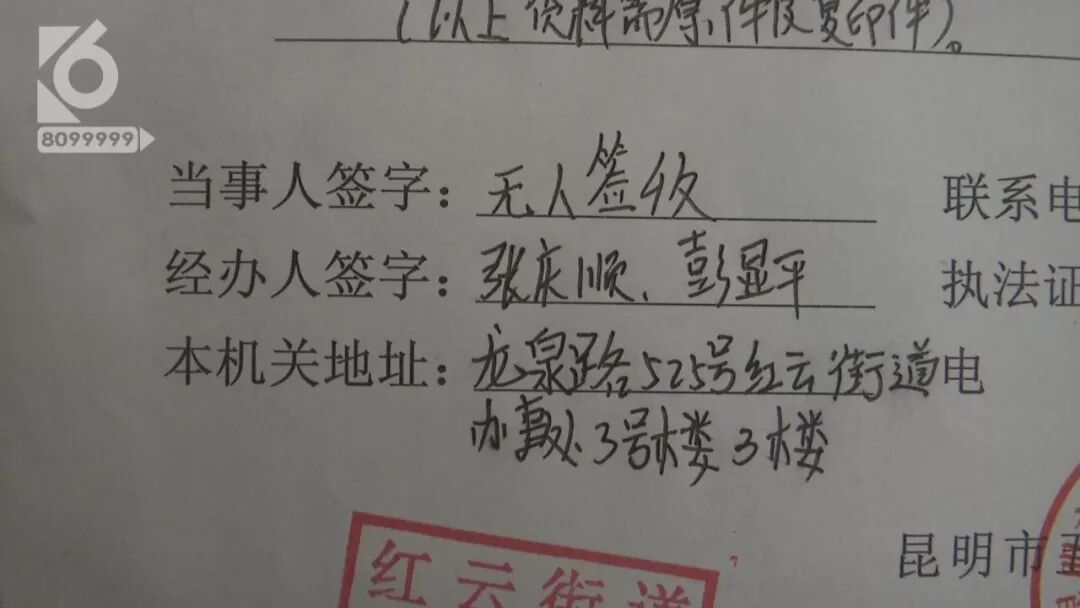 （以上资料需原件及复印件）。
6
8099999
当事人签字：无人签收 联系电
经办人签字：张庆顺、彭显平 执法证
本机关地址：龙泉路525号红云街道电
办事处3号楼3楼
昆明市五
红云街道